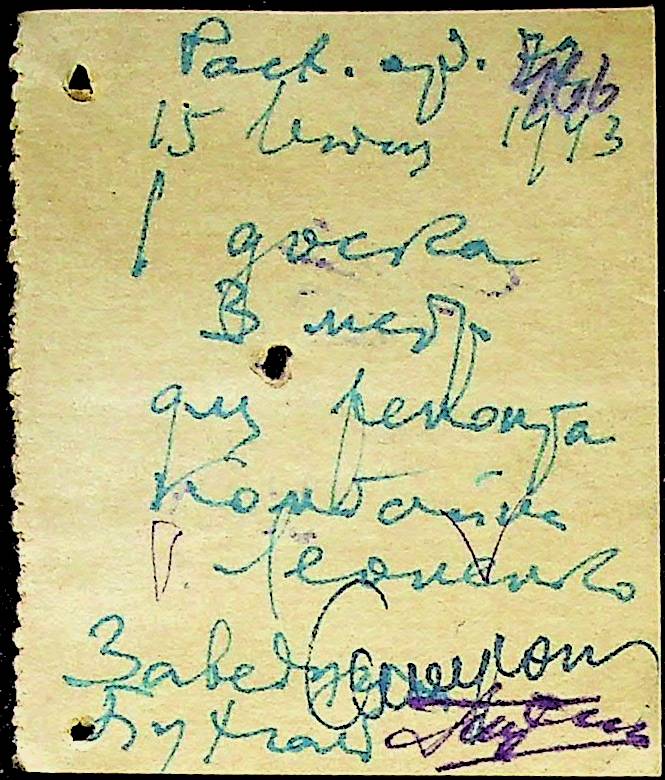 Расх. орд. 766
15 июня 1943
1 доска
3 метр
для ремонта
комбайна
Леоненко
Заведующ
Бухгалт